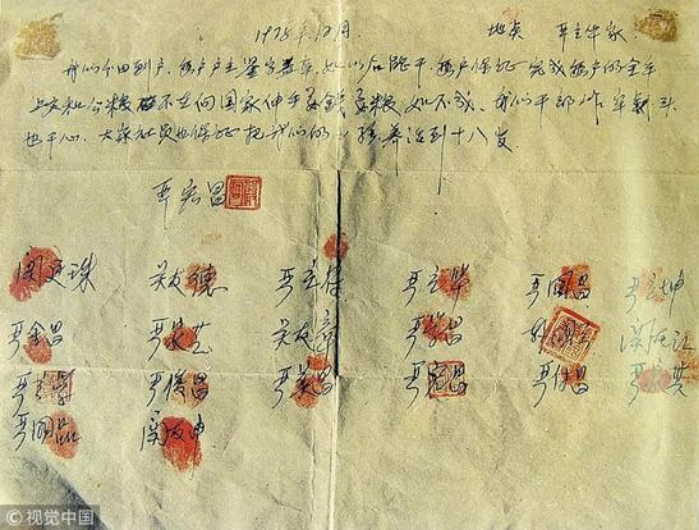 1978年12月. 地点 严立华家.
我们分田到户, 每户户主签字盖章, 如以后能干, 每户保证完成每户的全年
上交和公粮 不在向国家伸手要钱要粮 如不成, 我们干部作牢杀头
也干心, 大家社员也保证把我们的小孩养活到十八岁.
严宏昌
关廷珠 关友德 严立符 严立华 严国昌 严立坤
严金昌 严家芝 关友章 严学昌 韩国云 关友江
严立学 严俊昌 严美昌 严宏昌 严付昌 严家其
严国品 关友申
©视觉中国